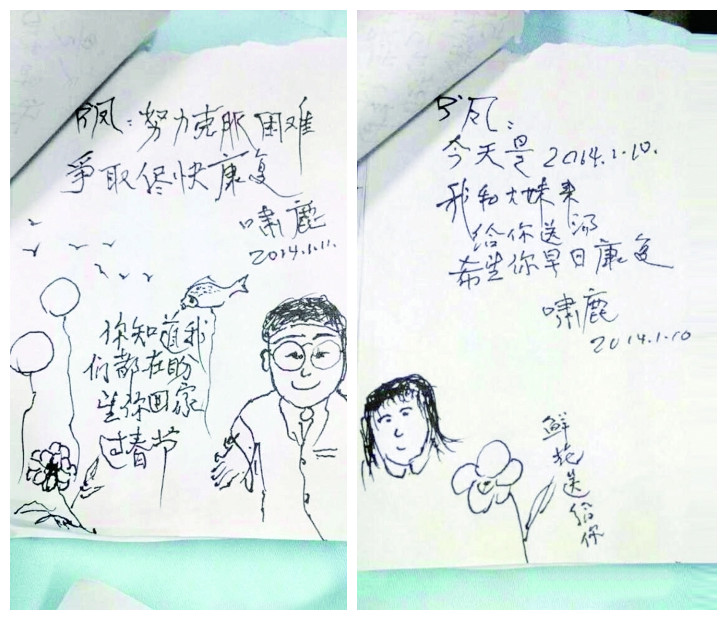 凤：努力克服困难
爭取侭快康复
啸鹿
2014.1.11.
你知道我
们都在盼
望你回家
过春节
凤：
今天是 2014.1.10.
我和大妹来
给你送汤
希望你早日康复
啸鹿
2014.1.10
鲜花送给你